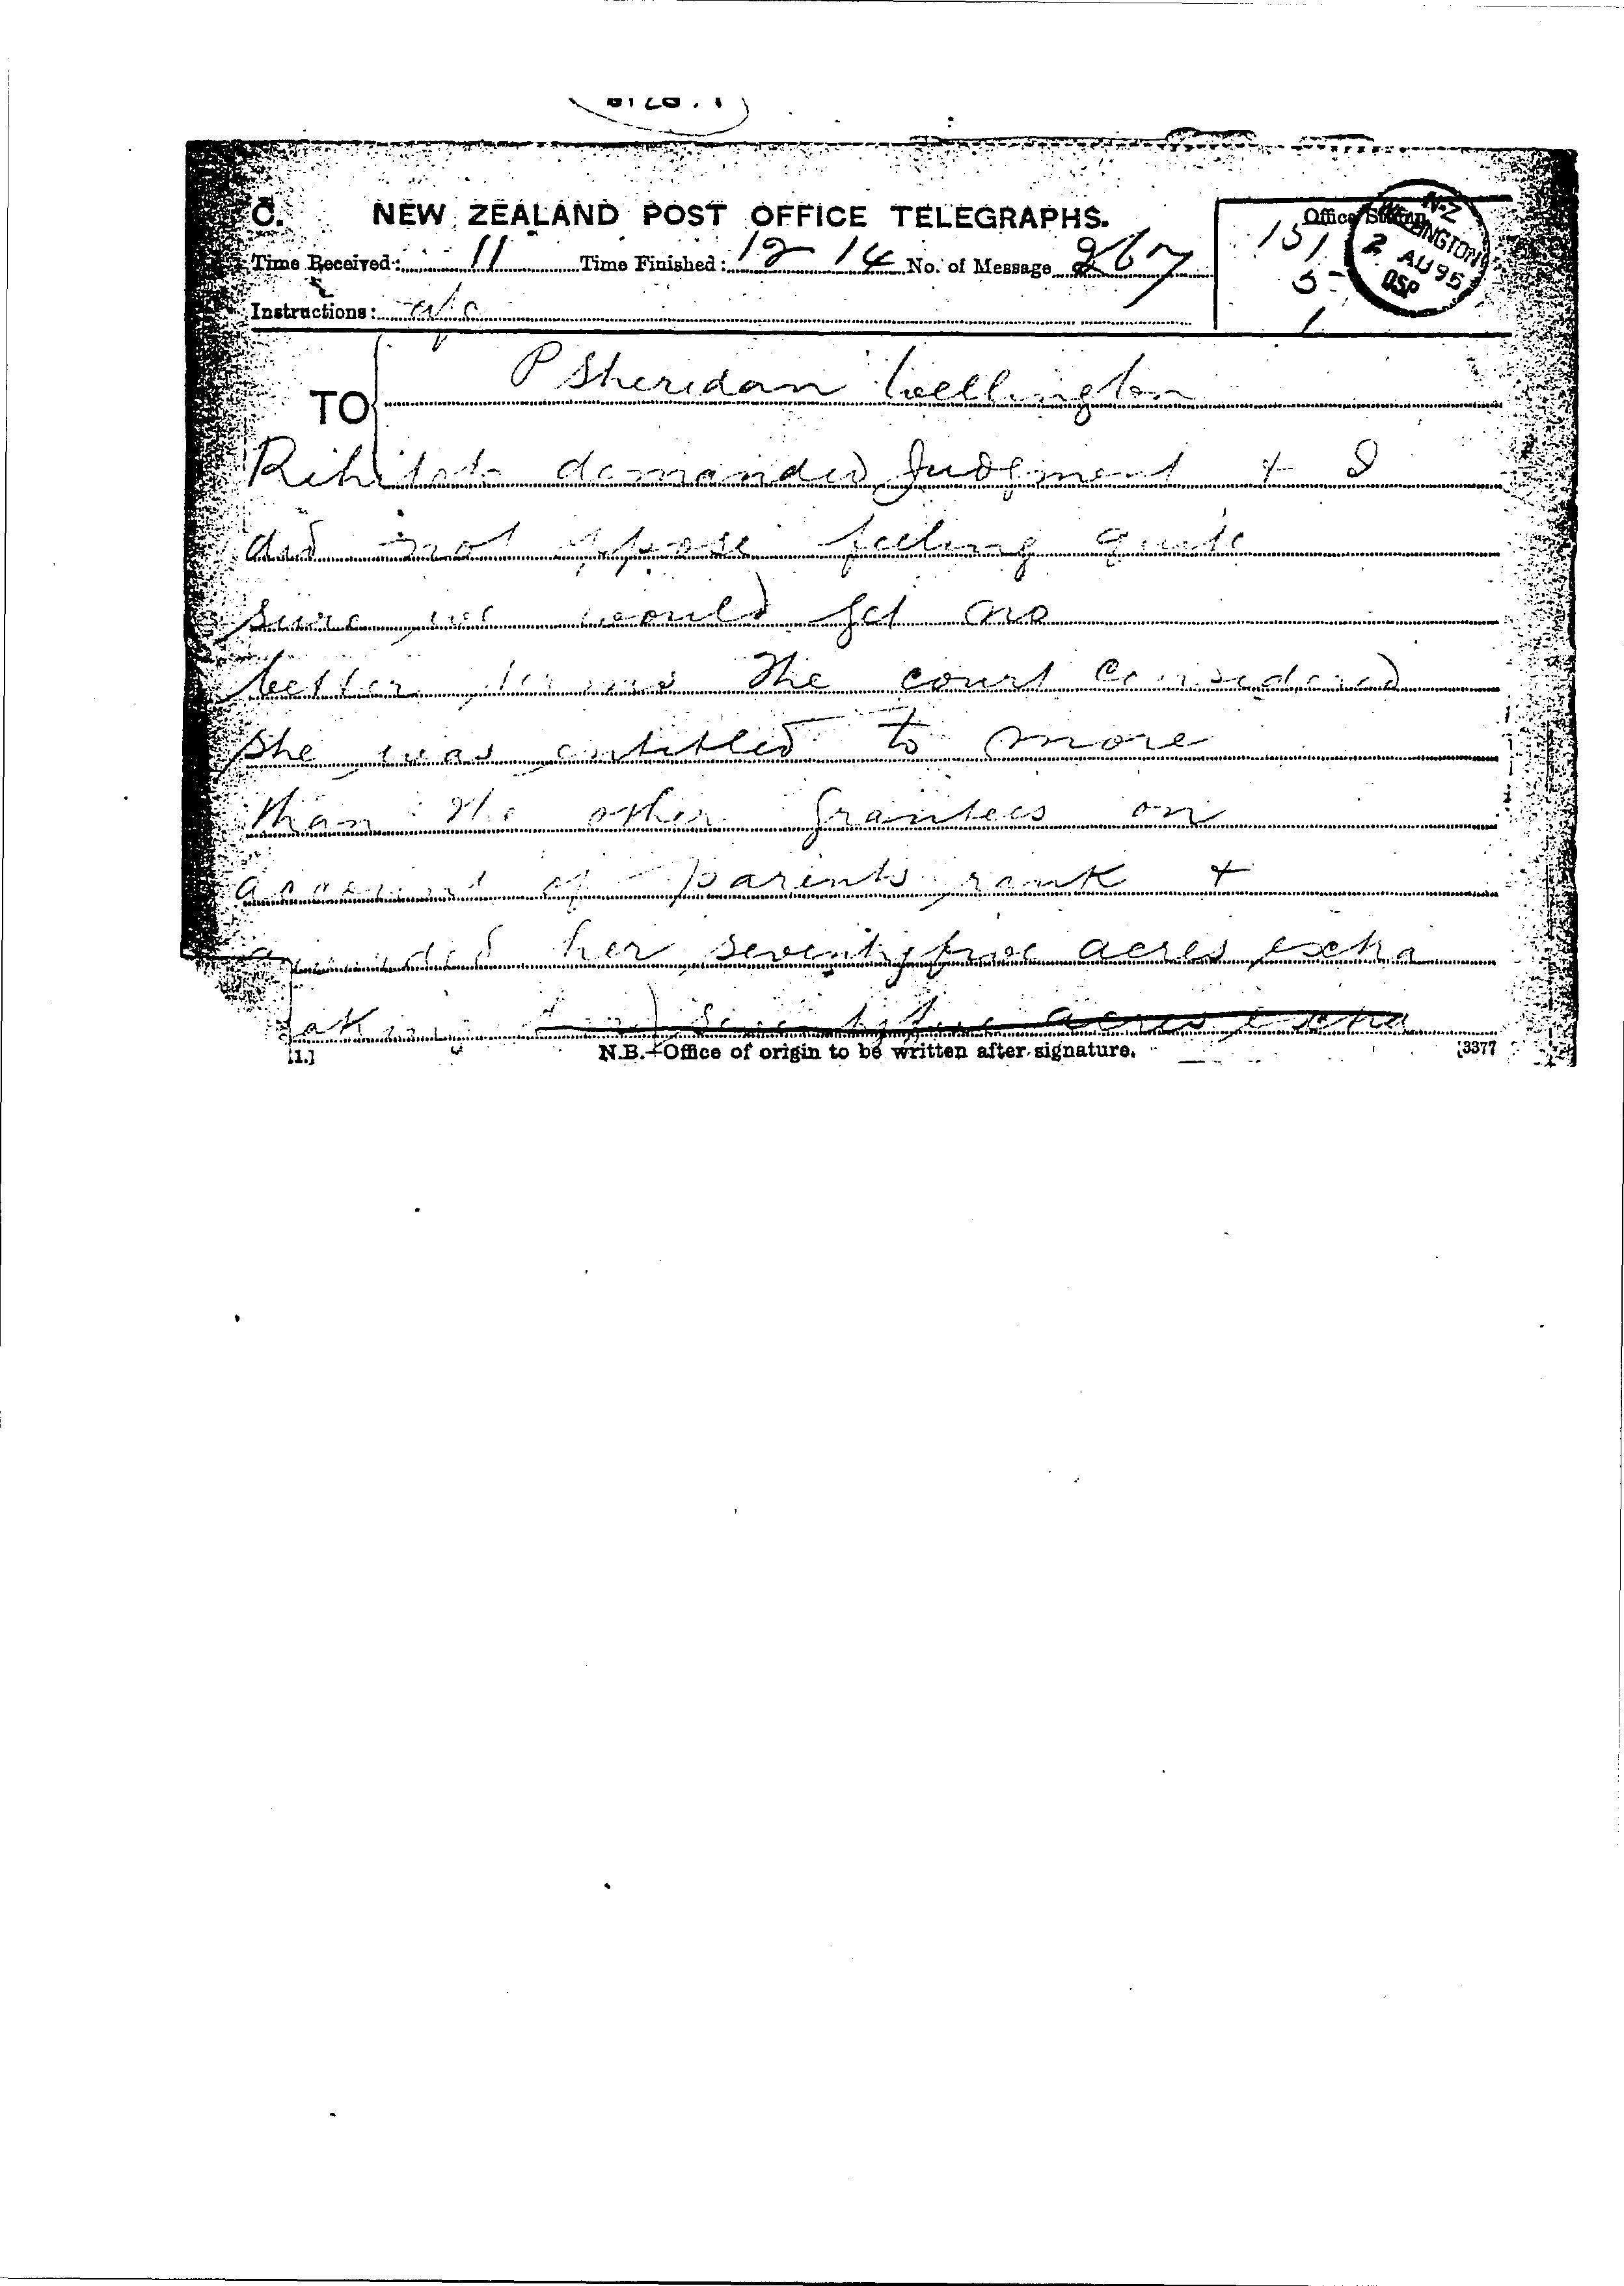 C.
NEW ZEALAND POST OFFICE TELEGRAPHS.
Time Received: 11 Time Finished: 12 14 No. of Message 267
Office Stamp
151
5-
1
N·Z
WELLINGTON
2 AU 95
Instructions:
TO P Sheridan Wellington
demanded Judgment & I
did not oppose feeling quite
sure we would get no
better terms The court considered
she was entitled to more
than the other Grantees on
account of parents rank &
awarded her seventyfive acres extra
seventyfive acres extra
[1.] N.B.—Office of origin to be written after signature. [3377